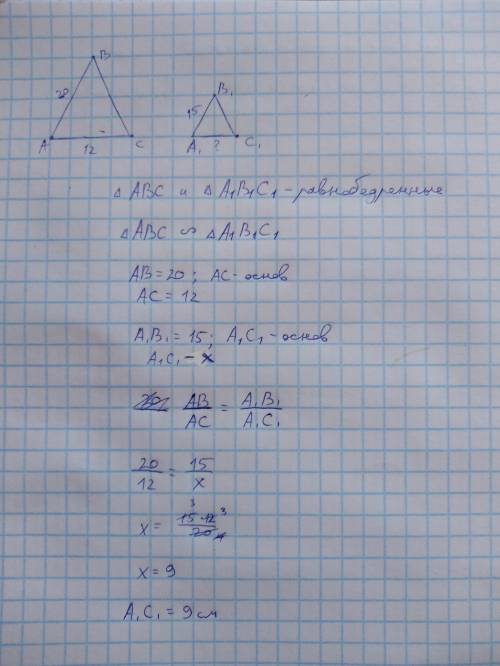 B
20
A
12
C
B₁
15
A₁ ? C₁
△ ABC и △ A₁B₁C₁ – равнобедренные
△ ABC ∽ △ A₁B₁C₁
AB = 20 ; AC - основ
AC = 12
A₁B₁ = 15 ; A₁C₁ - основ
A₁C₁ – x
AB/AC = A₁B₁/A₁C₁
20/12 = 15/x
x = 15³·12³/20₄
x = 9
A₁C₁ = 9 см